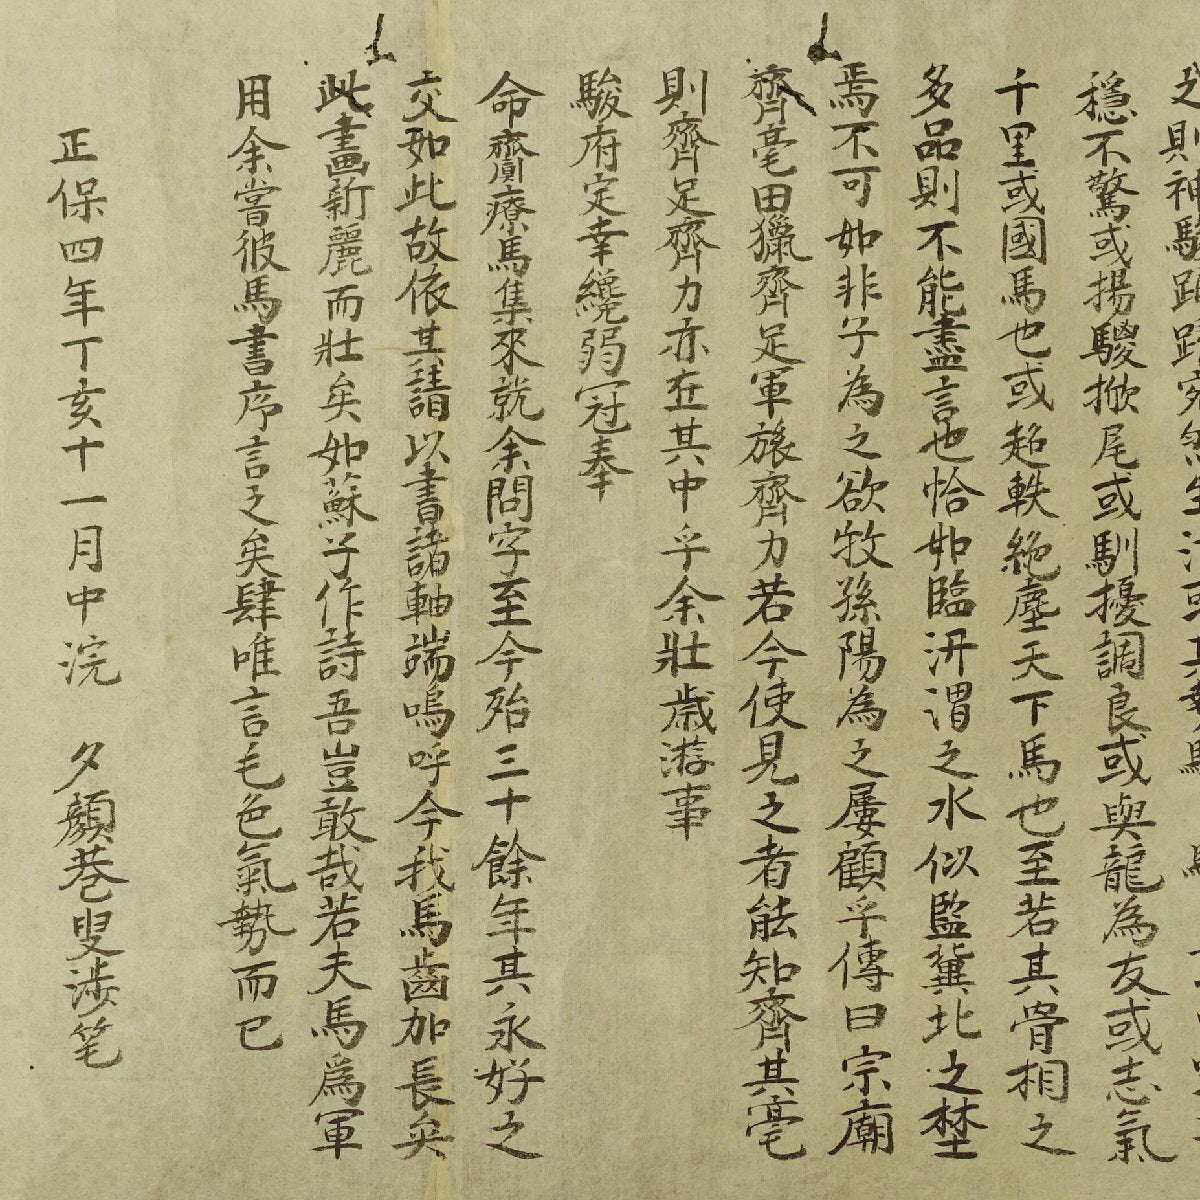 之則神駿
穩不驚或揚騣掀尾或馴擾調良或與龍為友或志氣
千里或國馬也或超軼絕塵天下馬也至若其骨相之
多品則不能盡言也恰如臨汧渭之水似監冀北之埜
焉不可如非子為之欲牧孫陽為之屢顧乎傳曰宗廟
齊毫田獵齊足軍旅齊力若今使見之者能知齊其毫
則齊足齊力亦在其中乎余壯歲游事
駿府定幸纔弱冠奉
命齋療馬集來就余問字至今殆三十餘年其永好之
交如此故依其請以書諸軸端嗚呼今我馬齒加長矣
此畫新麗而壯矣如蘇子作詩吾豈敢哉若夫馬為軍
用余嘗彼馬書序言之矣肆唯言毛色氣勢而已
正保四年丁亥十一月中浣 夕顏巷叟涉笔